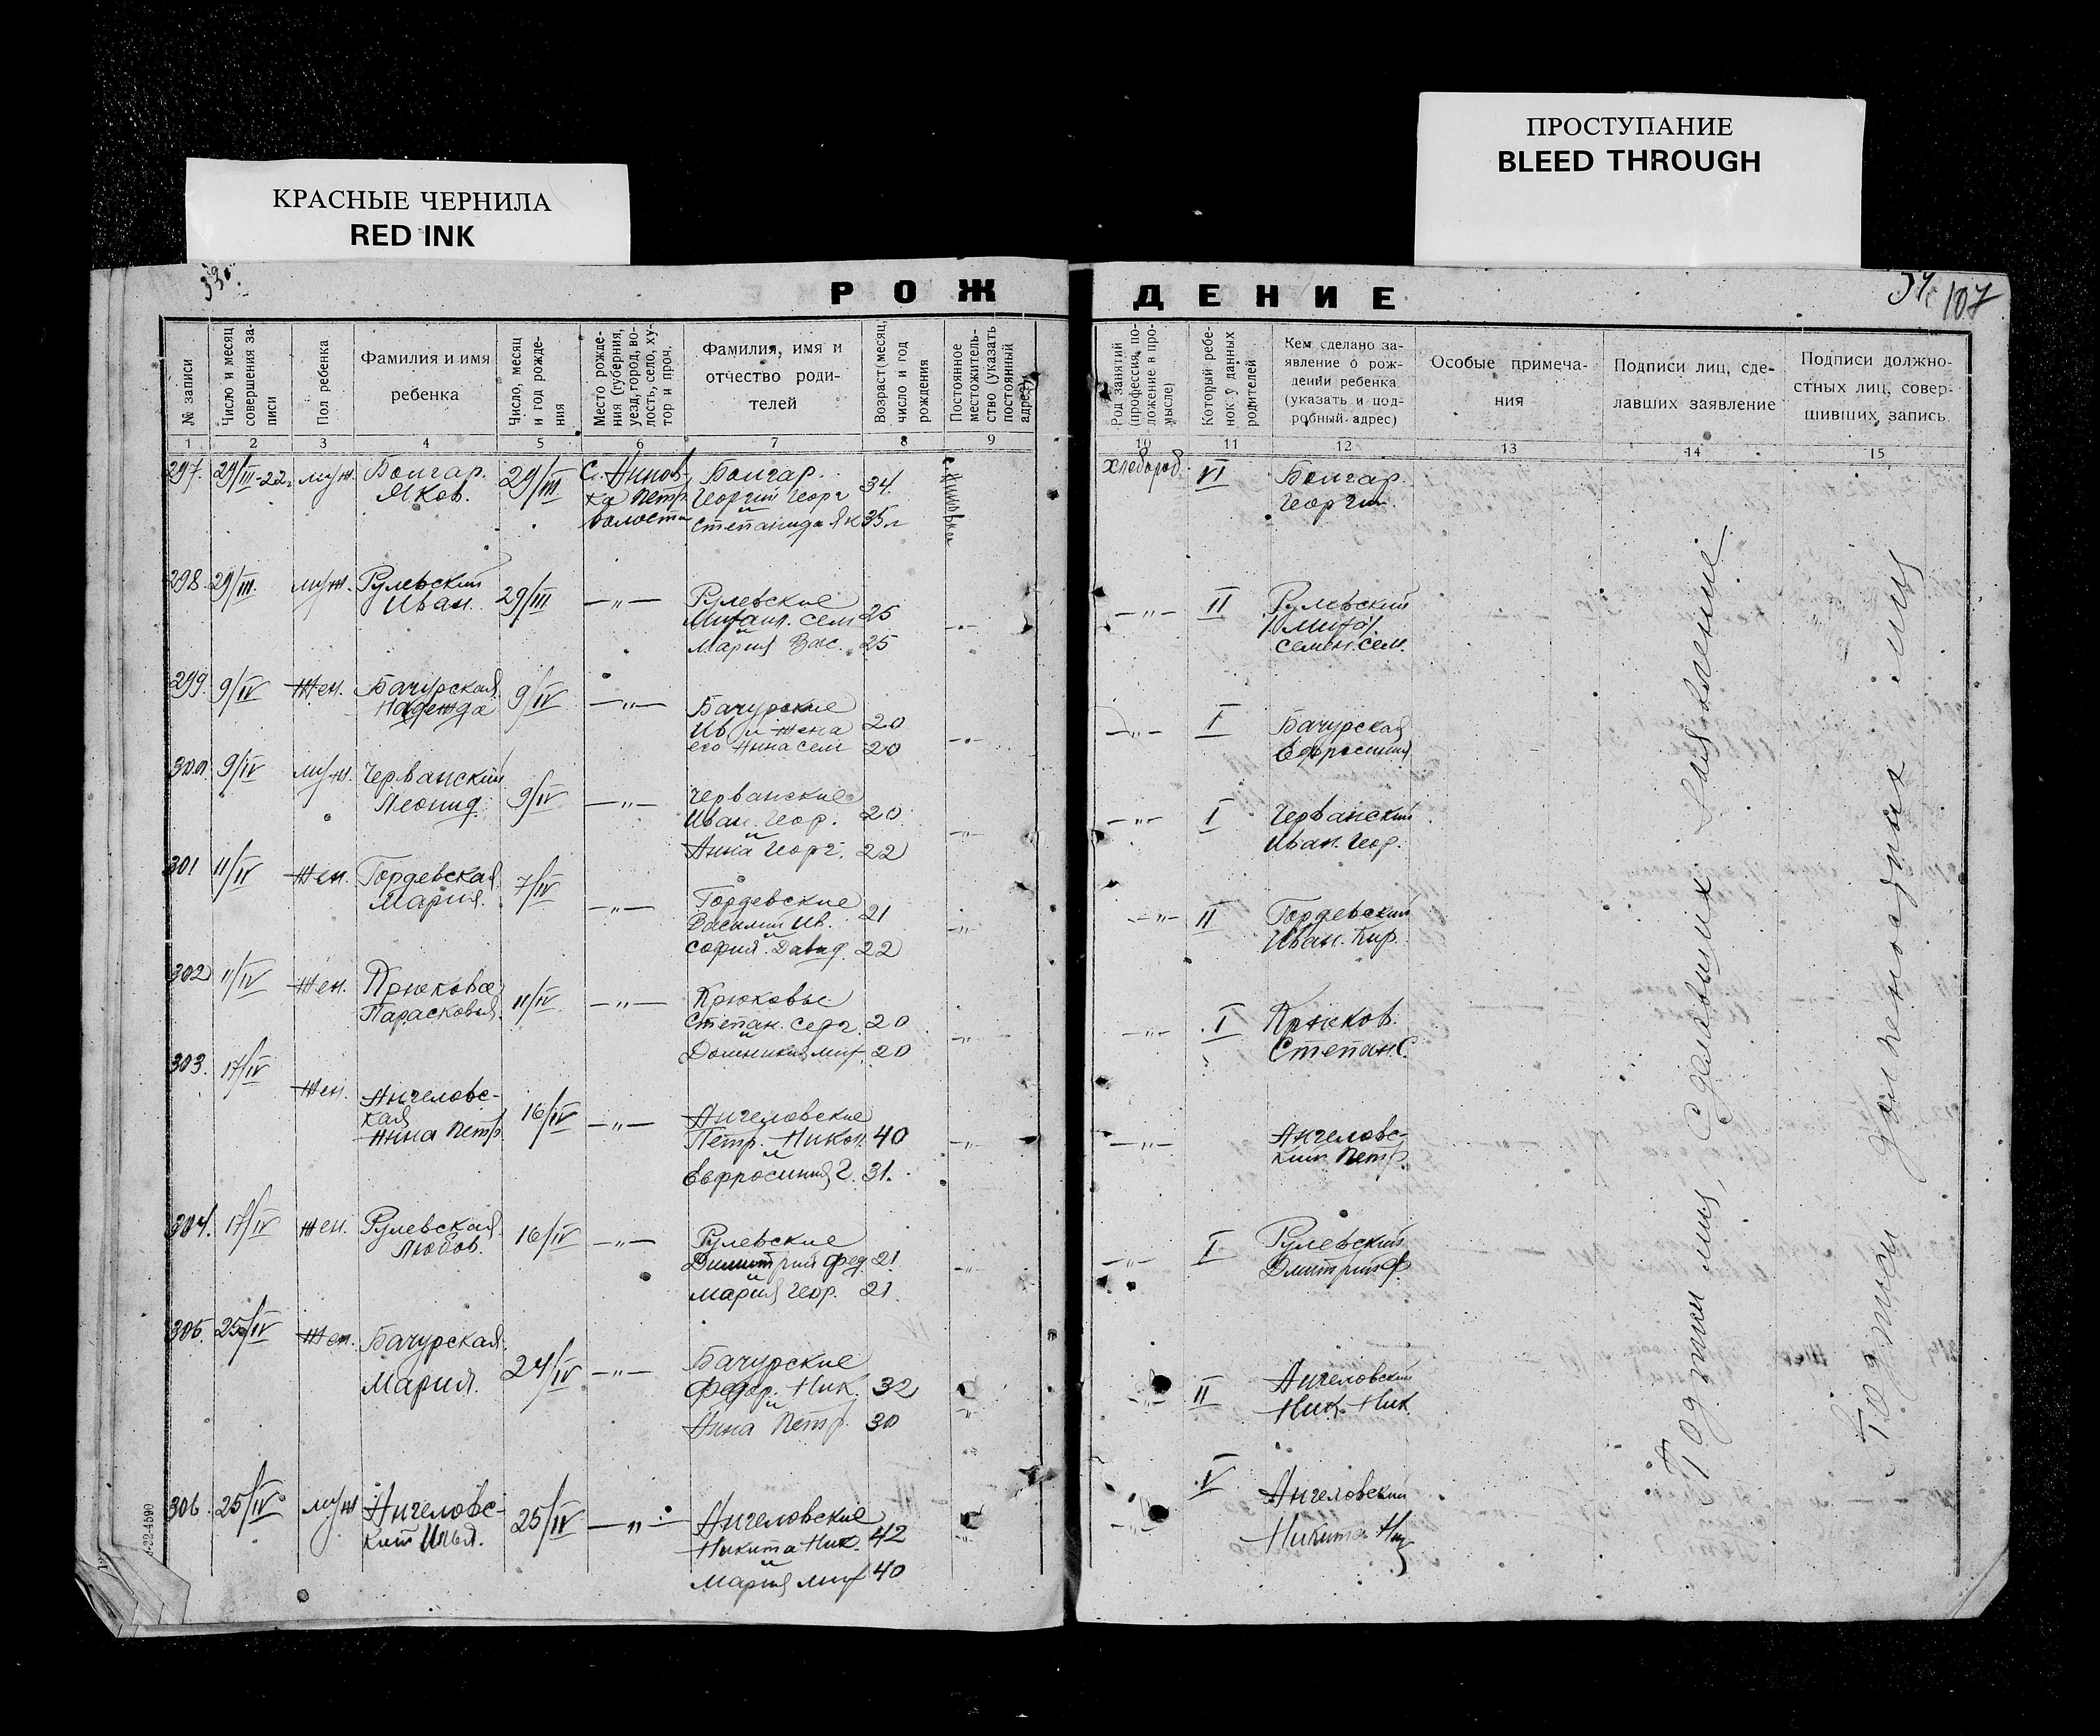 КРАСНЫЕ ЧЕРНИЛА
RED INK
ПРОСТУПАНИЕ
BLEED THROUGH
107
РОЖ ДЕНИЕ
№ записи
Число и месяц совершения записи
Пол ребенка
Фамилия и имя
ребенка
Число, месяц и год рождения
Место рождения (губерния, уезд, город, волость, село, хутор и проч.
Фамилия, имя и
отчество роди-
телей
Возраст (месяц, число и год рождения
Постоянное местожительство (указать постоянный адрес)
Род занятий (профессия, положение в промысле)
Который ребенок у данных родителей
Кем сделано за-
явление о рож-
дении ребенка
(указать и под-
робный адрес)
Особые примеча-
ния
Подписи лиц, сде-
лавших заявление
Подписи должно-
стных лиц, совер-
шивших запись
1 2 3 4 5 6 7 8 9 10 11 12 13 14 15
297. 29/III-22г муж. Болгар. 29/III С. Аннов- Болгар. хлебороб. VI Болгар.
Яков. ка Петр. Георгий Геор 34. Георгий.
волости и
Степанида Як 35 л
298. 29/III. муж. Рулевский 29/III —"— Рулевские —"— II Рулевский
Иван. Михаил. Сем 25
и Семен. Сем.
Мария Вас. 25
299. 9/IV Жен. Бачурская 9/IV —"— Бачурские —"— I Бачурская
Надежда Ив и жена 20 Ефросиния
его Анна Сем 20
300 9/IV муж. Черванский 9/IV —"— Черванские —"— I Черванский
Леонид. Иван. Геор. 20 Иван. Геор.
и
Анна Георг. 22
301 11/IV Жен. Гордевская 7/IV —"— Гордевские —"— II Гордевский
Мария. Василий Ив. 21 Иван. Кир.
и
София. Давид. 22
302 11/IV Жен. Крюкова 11/IV —"— Крюковы —"— I Крюков.
Парасковия. Степан. Серг. 20 Степан. С.
и
Домникия Мих. 20
303. 17/IV Жен. Ангеловс- 16/IV —"— Ангеловские —"— Ангеловс-
кая Петр. Никол. 40 кий Петр.
Анна Петр. и
Евфросиния Г. 31.
304. 17/IV Жен. Рулевская 16/IV —"— Рулевские —"— I Рулевский
Любов. Димитрий Фед. 21 Дмитрий Ф.
и
Мария Геор. 21.
305. 25/IV Жен. Бачурская. 24/IV —"— Бачурские II Ангеловский
Мария. Федор. Ник. 32 Ник. Ник.
и
Анна Петр. 30
306. 25/IV муж Ангеловс- 25/IV —"— Ангеловские —"— V Ангеловский
кий Илья. Никита Ник. 42 Никита Ник
и
Мария Мих 40
Подписи лиц, сделавших заявление
Подписи должностных лиц